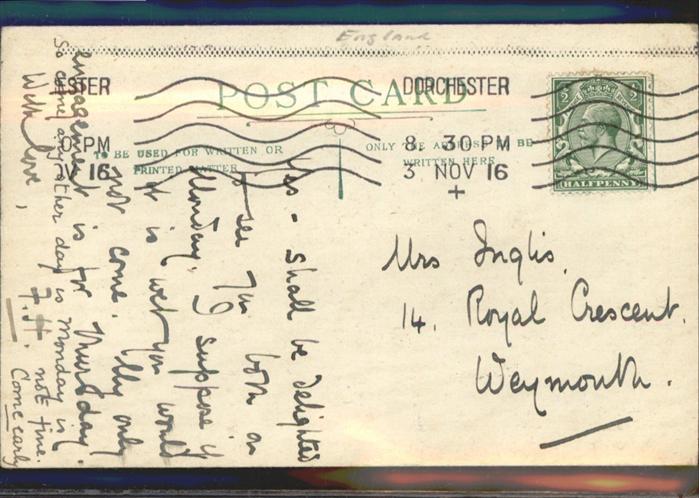 England
POST CARD
TO BE USED FOR WRITTEN OR
PRINTED MATTER
ONLY THE ADDRESS TO BE
WRITTEN HERE
ESTER
0 PM
OV 16
DORCHESTER
8. 30 PM
3 NOV 16
HALFPENNY
Mrs Inglis,
14. Royal Crescent.
Weymouth.
Yes - shall be delighted
to see you both on
Monday. I suppose if
it is wet you would
not come. My only
engagement is for Thursday.
So come any other day is Monday is
not fine.
With love,
Come early